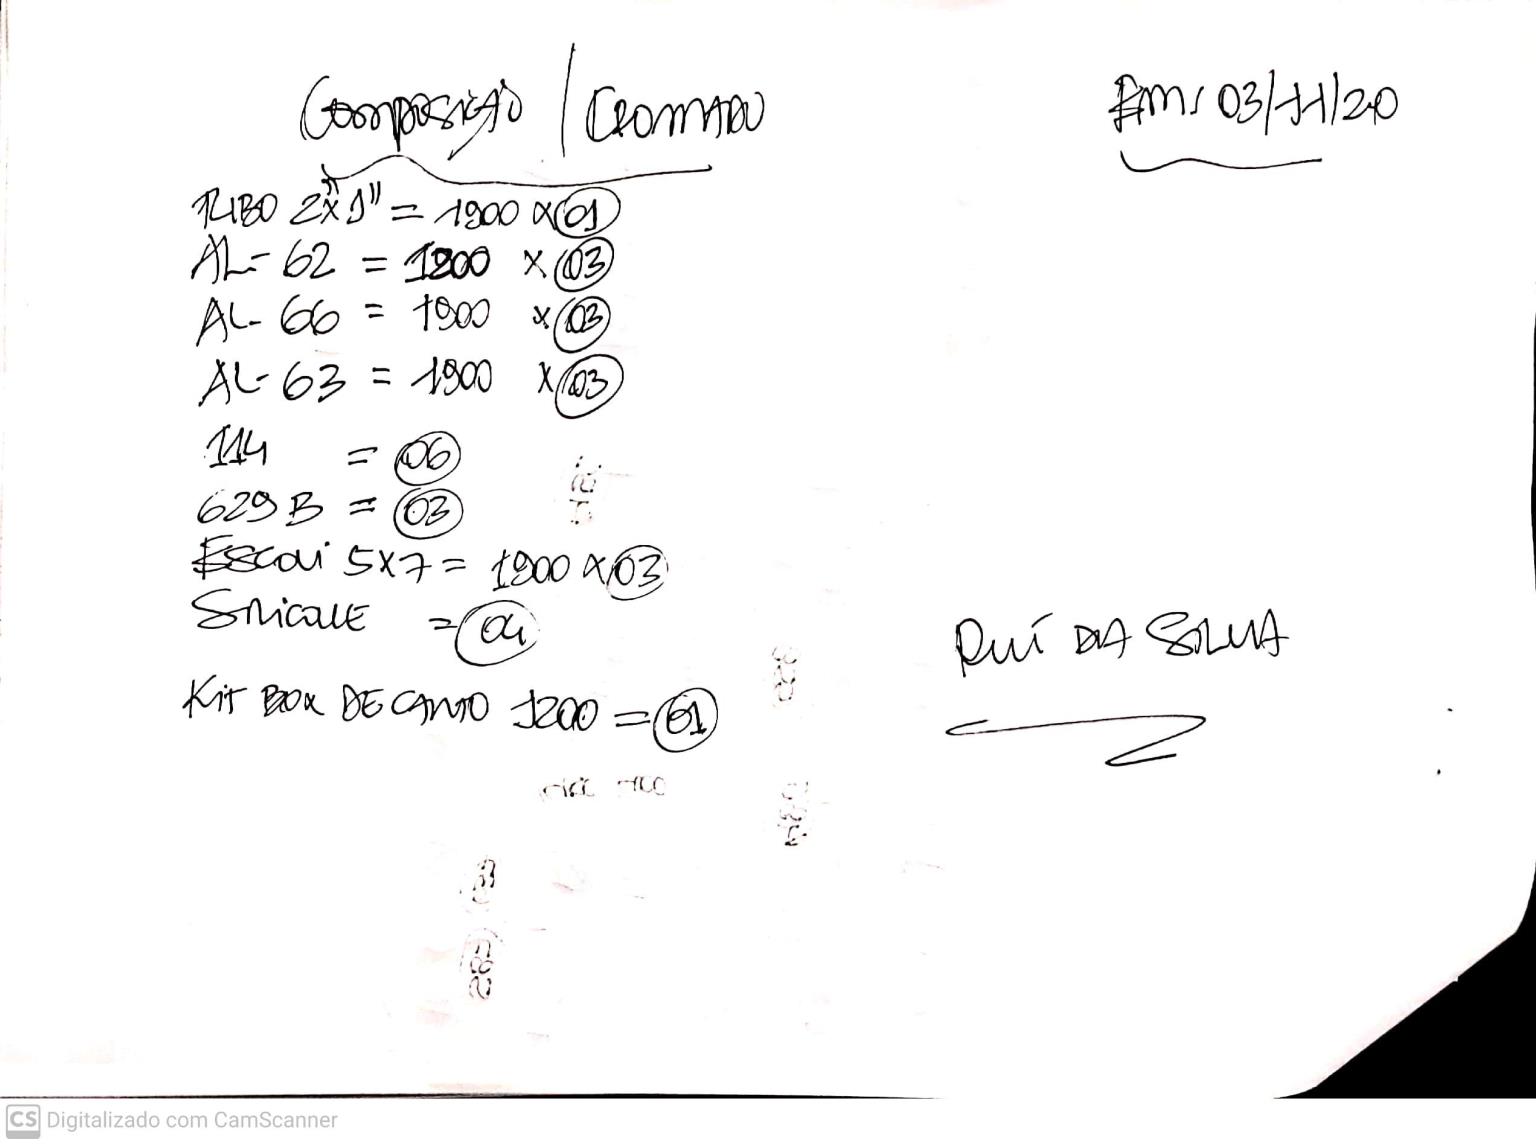 Composição / Cromado
Em: 03/11/20
Tubo 2"x1" = 1900 x 01
AL-62 = 1200 x 03
AL-66 = 1900 x 03
AL-63 = 1900 x 03
114 = 06
629 B = 03
5x7 = 1900 x 03
= 04
Rui da Silva
Kit Box de Canto 1200 = 01
CS Digitalizado com CamScanner